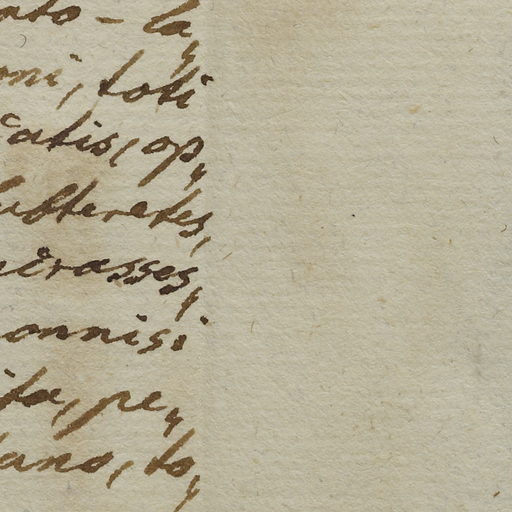 ato - la,
oni, toti
catis, op,
lutteretes,
icrasses,
onnisi
ita, pe,
tano, to,